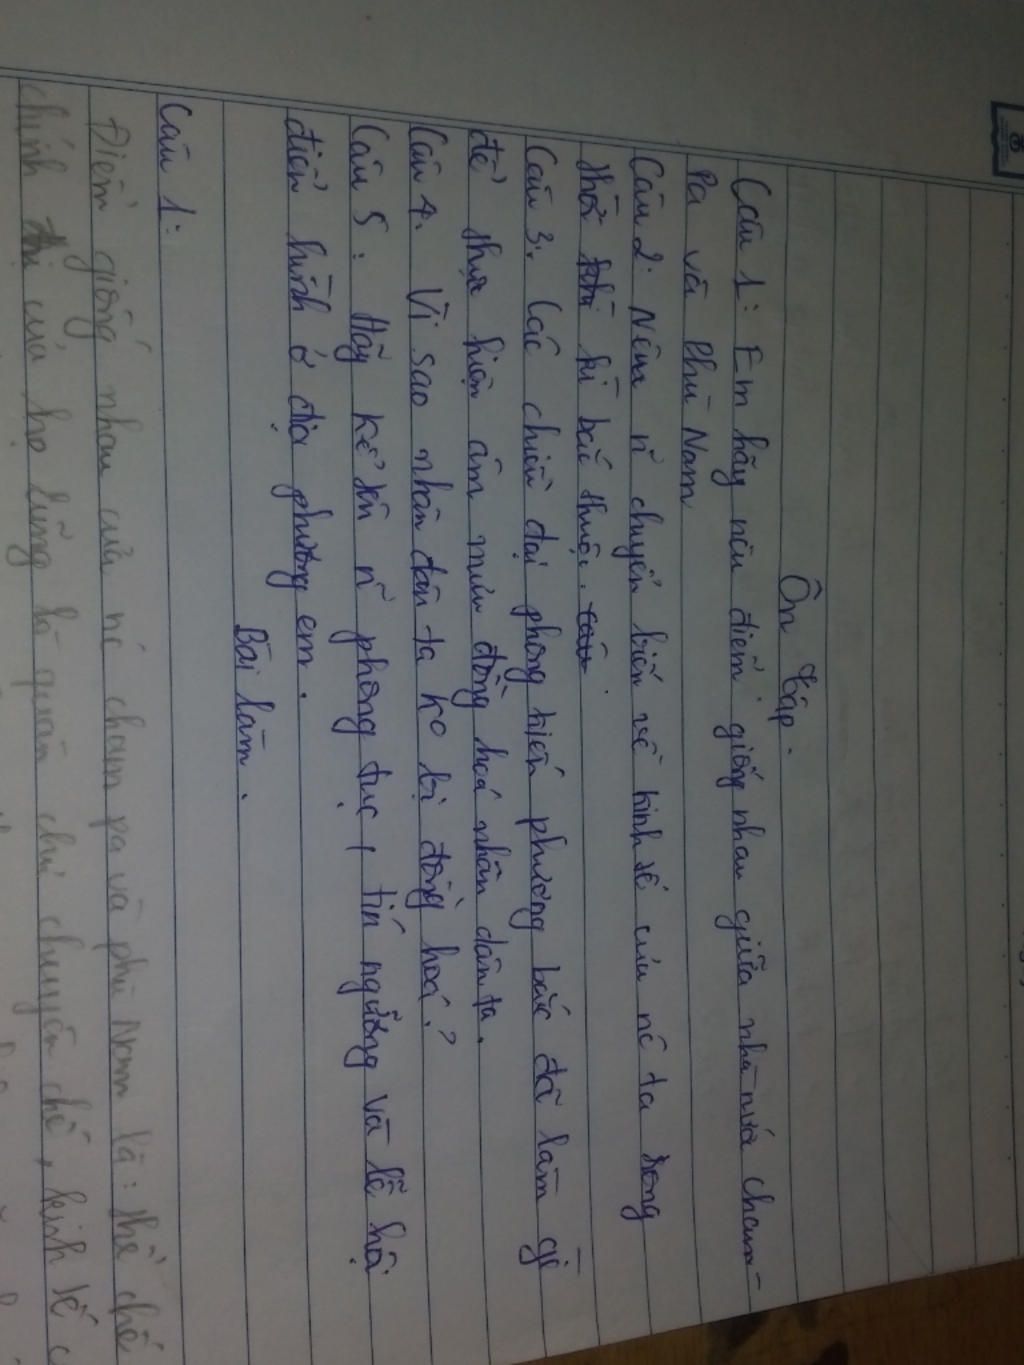 Ôn tập.
Câu 1: Em hãy nêu điểm giống nhau giữa nhà nước cham-
Pa và Phù Nam
Câu 2. Nêu n~ chuyển biến về kinh tế của nc ta trong
thời kì bắc thuộc.
Câu 3. Các chiều đại phong kiến phương bắc đã làm gì
để thực hiện âm mưu đồng hoá nhân dân ta.
Câu 4. Vì sao nhân dân ta ko bị đồng hoá?
Câu 5: Hãy kể tên n~ phong tục, tín ngưỡng và lễ hội
điển hình ở địa phương em.
Bài làm.
Câu 1:
Điểm giống nhau của nc cham pa và phù Nam là: thể chế
chính trị của họ cũng là quân chủ chuyên chế, kinh tế